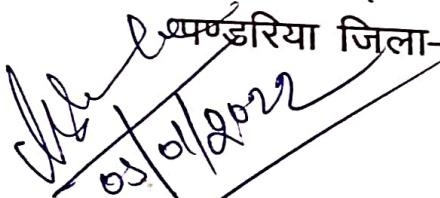 पण्डरिया जिला-
03/01/2022